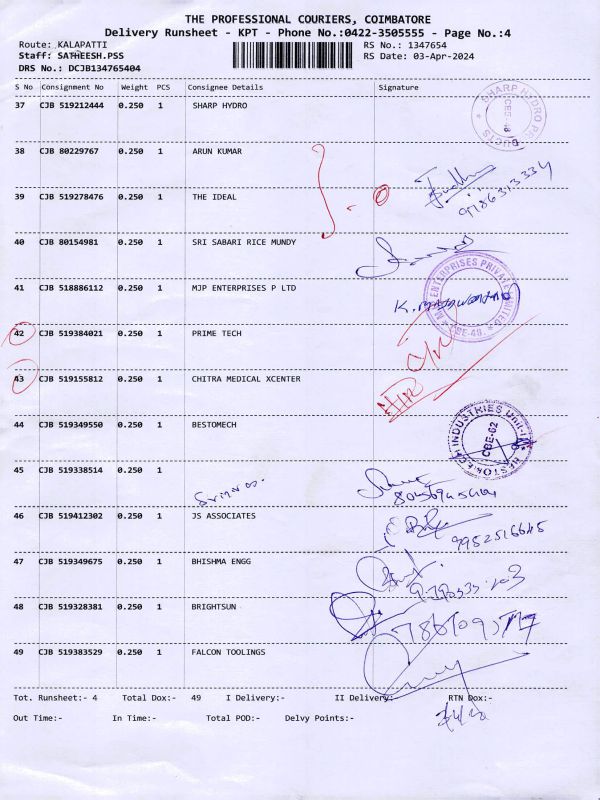 THE PROFESSIONAL COURIERS, COIMBATORE
Delivery Runsheet - KPT - Phone No.:0422-3505555 - Page No.:4
Route: KALAPATTI RS No.: 1347654
Staff: SATHEESH.PSS RS Date: 03-Apr-2024
DRS No.: DCJB134765404
S No Consignment No Weight PCS Consignee Details Signature
37 CJB 519212444 0.250 1 SHARP HYDRO
SHARP HYDRO PRODUCTS
38 CJB 80229767 0.250 1 ARUN KUMAR
39 CJB 519278476 0.250 1 THE IDEAL
9786313334
40 CJB 80154981 0.250 1 SRI SABARI RICE MUNDY
41 CJB 518886112 0.250 1 MJP ENTERPRISES P LTD
ENTERPRISES PRIVATE LIMITED
CBE-48.
42 CJB 519384021 0.250 1 PRIME TECH
43 CJB 519155812 0.250 1 CHITRA MEDICAL XCENTER
44 CJB 519349550 0.250 1 BESTOMECH
BESTOMECH INDUSTRIES Unit-I
CBE-62
45 CJB 519338514 0.250 1
46 CJB 519412302 0.250 1 JS ASSOCIATES
47 CJB 519349675 0.250 1 BHISHMA ENGG
48 CJB 519328381 0.250 1 BRIGHTSUN
49 CJB 519383529 0.250 1 FALCON TOOLINGS
Tot. Runsheet:- 4 Total Dox:- 49 I Delivery:- II Delivery:- RTN Dox:-
Out Time:- In Time:- Total POD:- Delvy Points:-